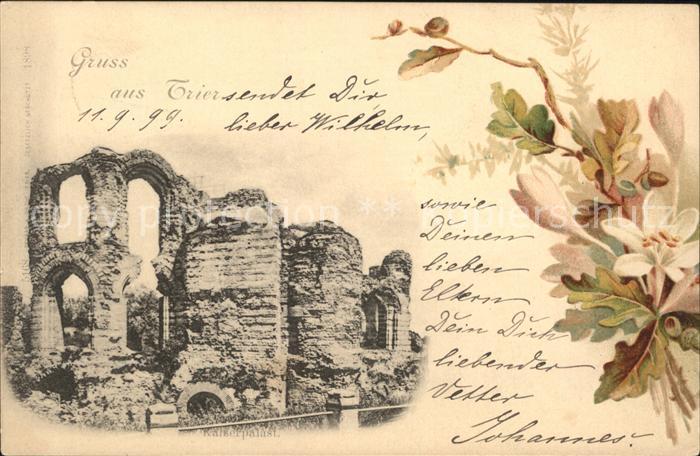 Gruss
aus Trier sendet Dir,
11.9.99. lieber Wilhelm,
sowie
Deinen
lieben
Eltern
Dein Dich
liebender
Vetter
Johannes.
Kaiserpalast.
copy protection ** Kopierschutz